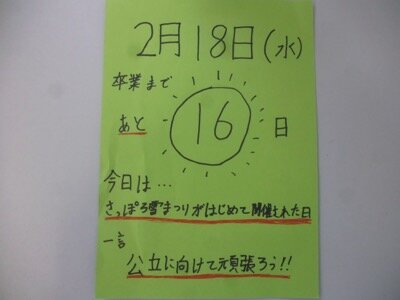 2月18日(水)
卒業まで
あと 16 日
今日は…
さっぽろ雪まつりがはじめて開催された日
一言
公立に向けて頑張ろう!!